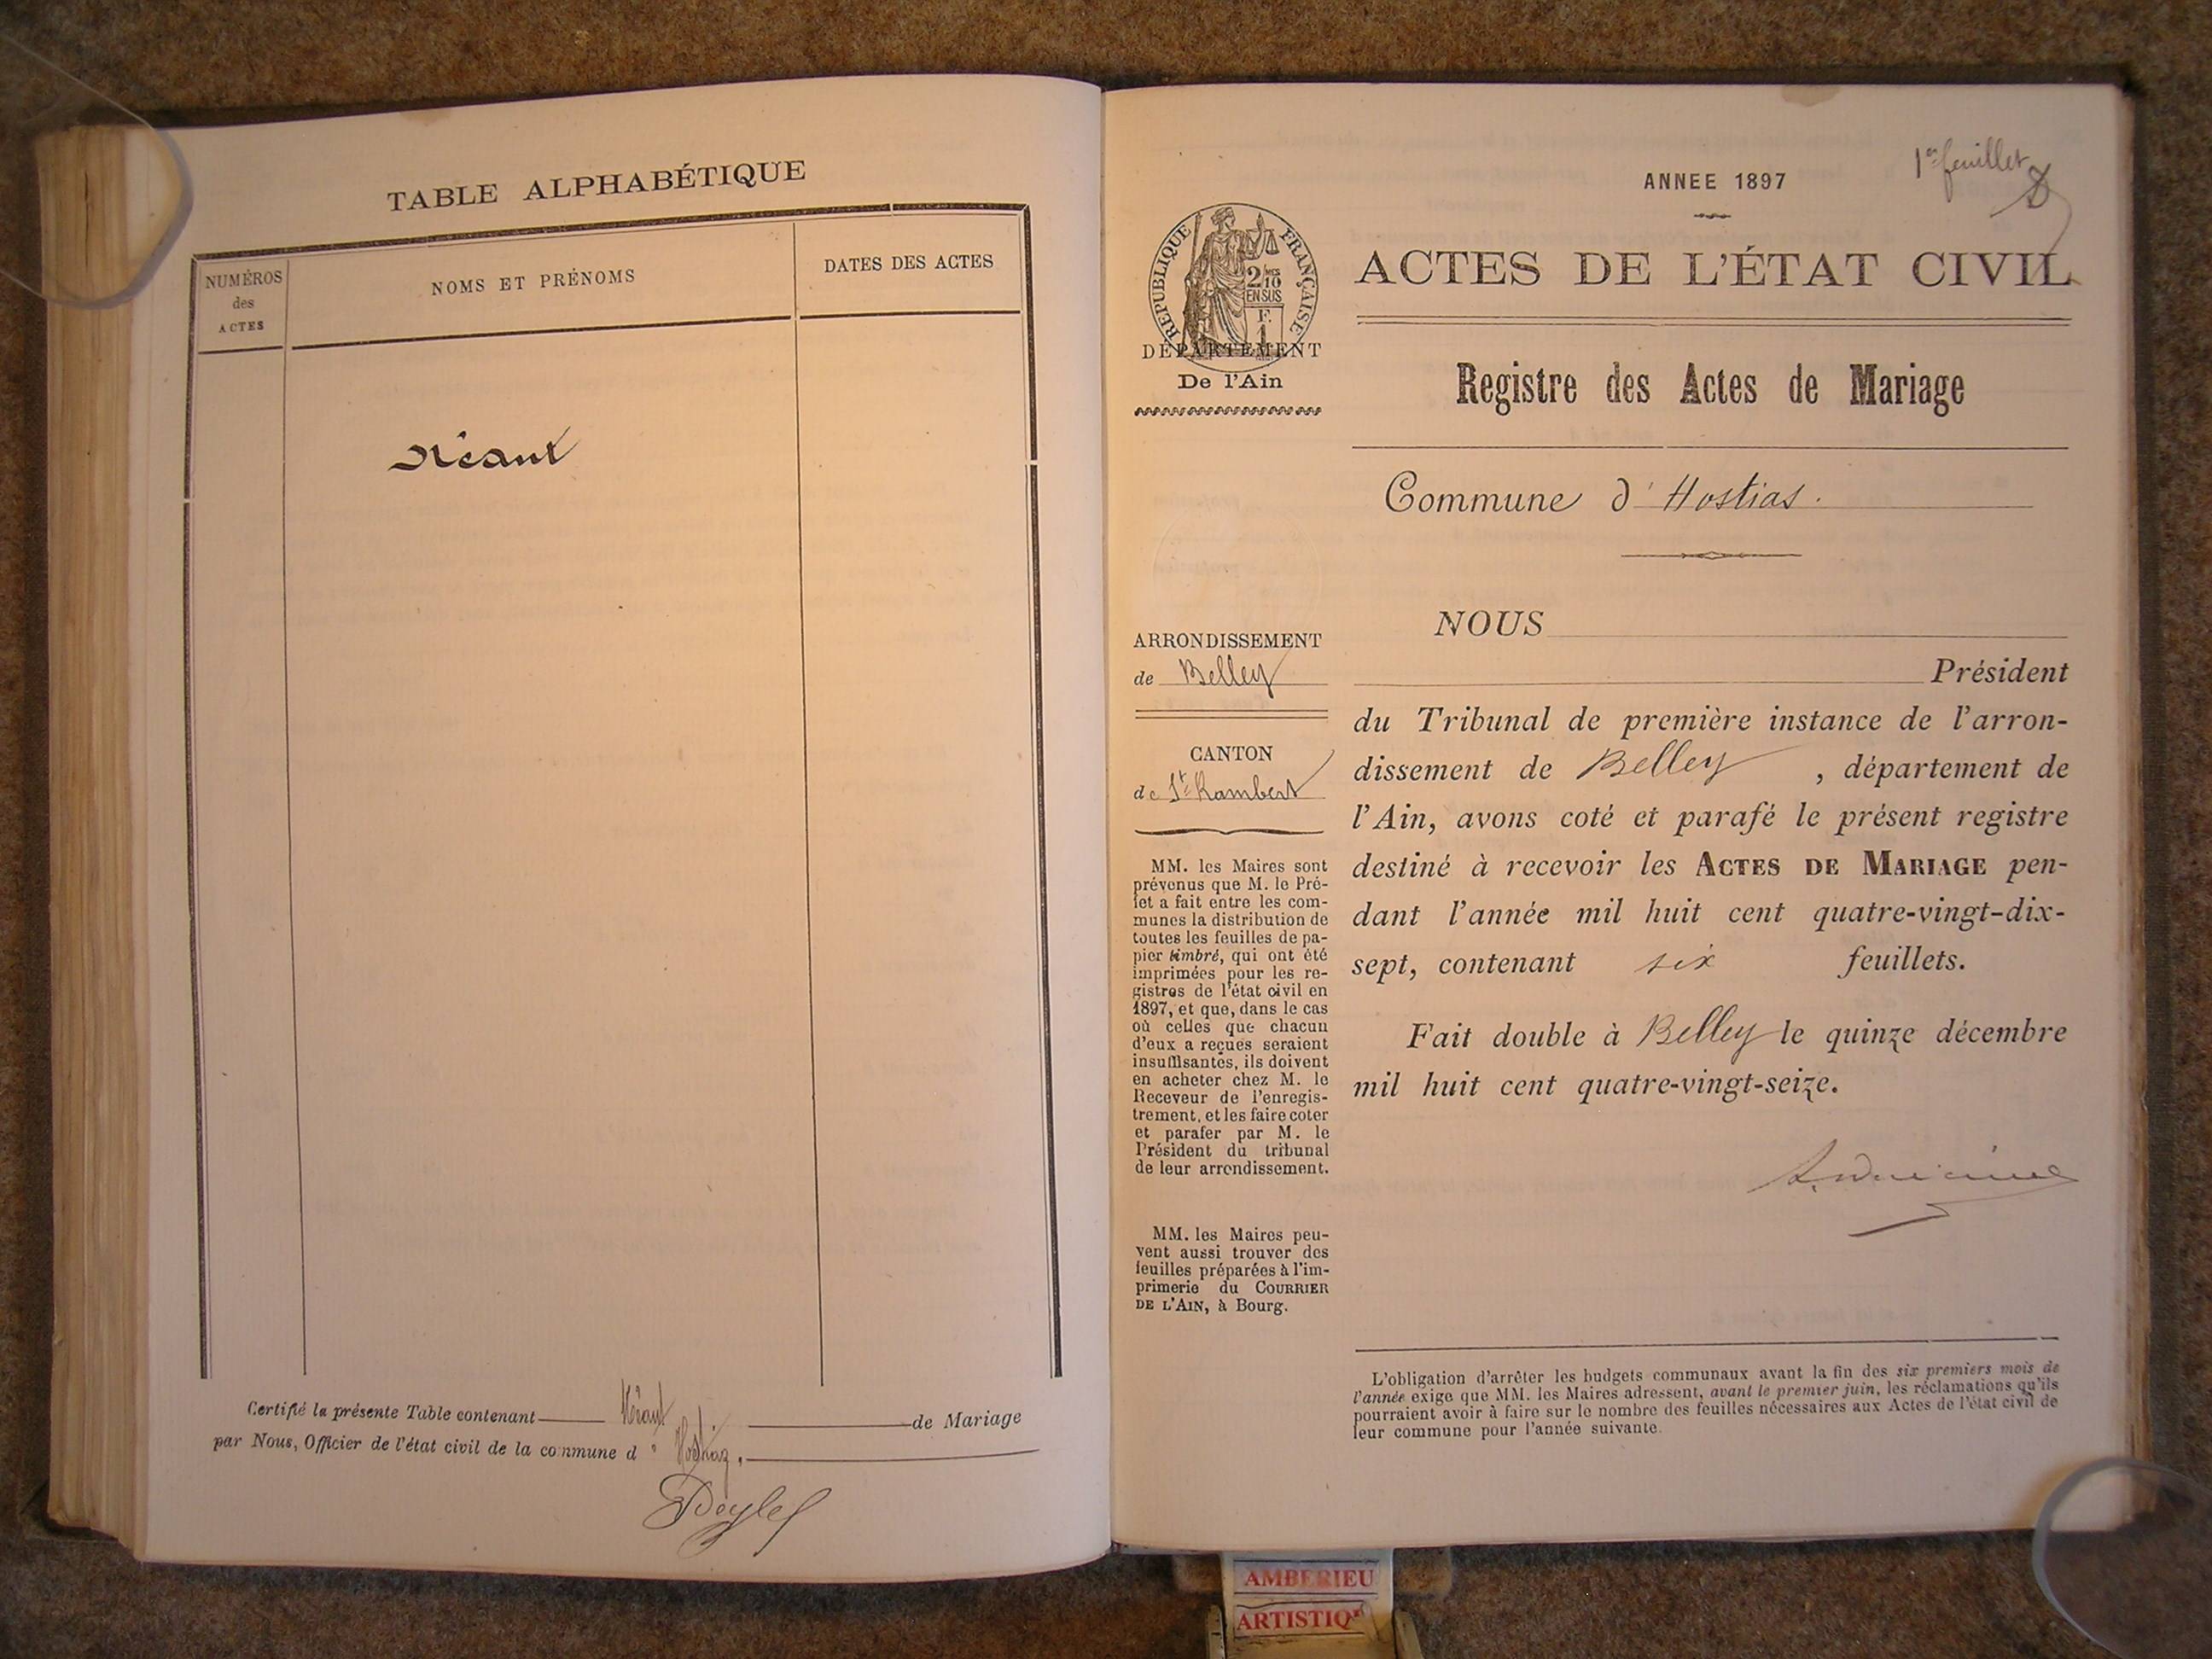 TABLE ALPHABÉTIQUE
NUMÉROS
des
ACTES
NOMS ET PRÉNOMS
DATES DES ACTES
Néant
Certifié la présente Table contenant Néant de Mariage
par Nous, Officier de l'état civil de la commune d' Hostiaz.
1er feuillet
ANNEE 1897
RÉPUBLIQUE FRANÇAISE
2/10
EN SUS
F.
1
DÉPARTEMENT
De l'Ain
ACTES DE L'ÉTAT CIVIL
Registre des Actes de Mariage
Commune d'Hostias.
ARRONDISSEMENT
de Belley
CANTON
de St Rambert
MM. les Maires sont
prévenus que M. le Pré-
fet a fait entre les com-
munes la distribution de
toutes les feuilles de pa-
pier timbré, qui ont été
imprimées pour les re-
gistres de l'état civil en
1897, et que, dans le cas
où celles que chacun
d'eux a reçues seraient
insuffisantes, ils doivent
en acheter chez M. le
Receveur de l'enregis-
trement, et les faire coter
et parafer par M. le
Président du tribunal
de leur arrondissement.
MM. les Maires peu-
vent aussi trouver des
feuilles préparées à l'im-
primerie du COURRIER
DE L'AIN, à Bourg.
NOUS
Président
du Tribunal de première instance de l'arron-
dissement de Belley , département de
l'Ain, avons coté et parafé le présent registre
destiné à recevoir les ACTES DE MARIAGE pen-
dant l'année mil huit cent quatre-vingt-dix-
sept, contenant six feuillets.
Fait double à Belley le quinze décembre
mil huit cent quatre-vingt-seize.
L'obligation d'arrêter les budgets communaux avant la fin des six premiers mois de
l'année exige que MM. les Maires adressent, avant le premier juin, les réclamations qu'ils
pourraient avoir à faire sur le nombre des feuilles nécessaires aux Actes de l'état civil de
leur commune pour l'année suivante.
AMBERIEU
ARTISTIQ